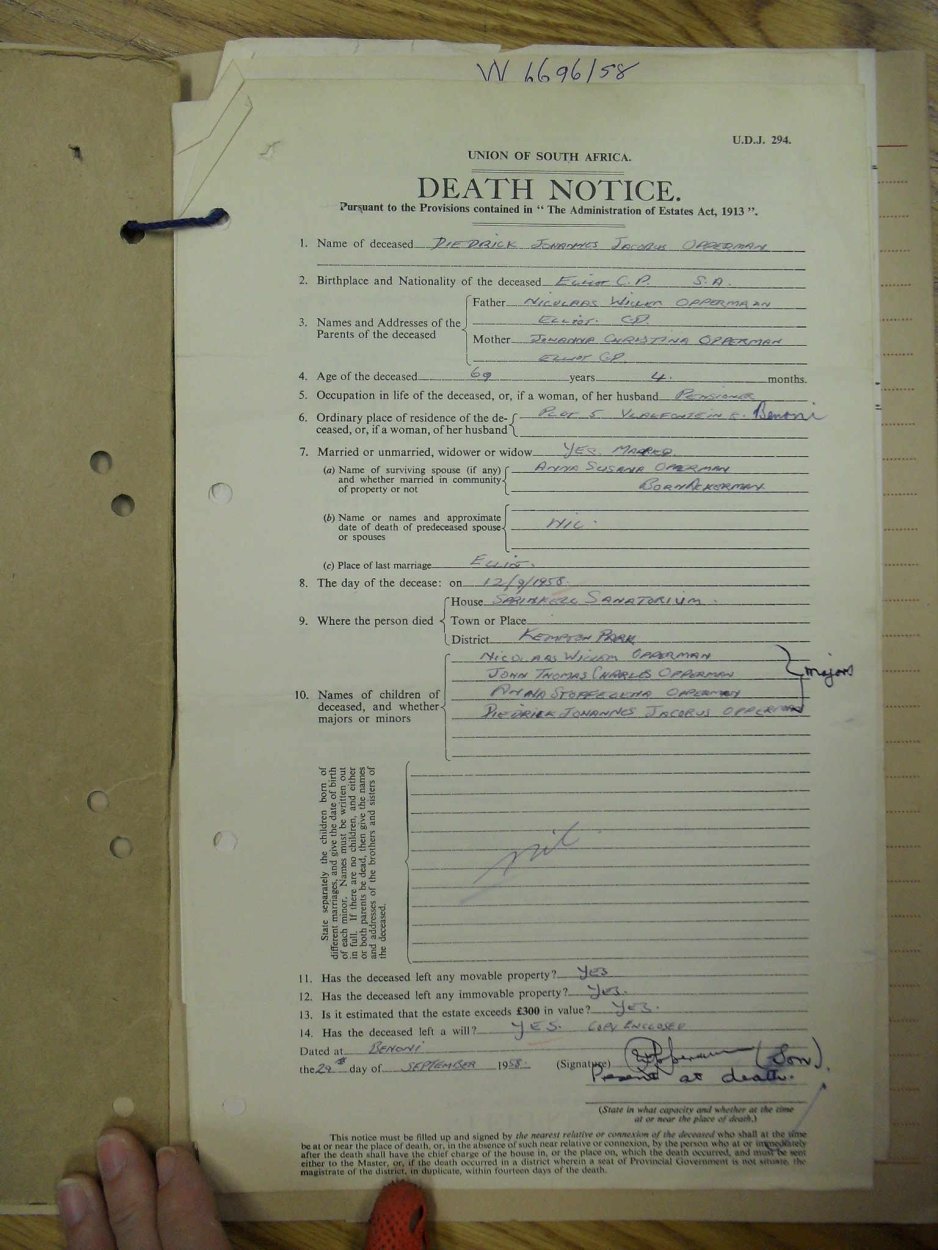 W 6696/58
U.D.J. 294.
UNION OF SOUTH AFRICA.
DEATH NOTICE.
Pursuant to the Provisions contained in " The Administration of Estates Act, 1913 ".
1. Name of deceased DIEDRICK JOHANNES JACOBUS OPPERMAN
2. Birthplace and Nationality of the deceased ELLIOT C.P. S.A.
3. Names and Addresses of the Parents of the deceased
Father NICOLAAS WILLEM OPPERMAN
ELLIOT. CP.
Mother JOHANNA CHRISTINA OPPERMAN
ELLIOT CP.
4. Age of the deceased 69 years 4. months.
5. Occupation in life of the deceased, or, if a woman, of her husband PENSIONER
6. Ordinary place of residence of the deceased, or, if a woman, of her husband
PLOT 5 VLAKFONTEIN Benoni
7. Married or unmarried, widower or widow YES. MARRIED.
(a) Name of surviving spouse (if any) and whether married in community of property or not
ANNA SUSANA OPPERMAN
BORN ACKERMAN
(b) Name or names and approximate date of death of predeceased spouse or spouses
NIL.
(c) Place of last marriage ELLIOT.
8. The day of the decease: on 12/9/1958.
9. Where the person died
House SANATORIUM.
Town or Place
District KEMPTON PARK
10. Names of children of deceased, and whether majors or minors
NICOLAAS WILLEM OPPERMAN
JOHN THOMAS CHARLES OPPERMAN
ANNA OPPERMAN
DIEDRICK JOHANNES JACOBUS OPPERMAN
majors
State separately the children born of
different marriages, and give the date of birth
of each minor. Names must be written out
in full. If there are no children, and either
or both parents be dead, then give the names
and addresses of the brothers and sisters of
the deceased.
nil
11. Has the deceased left any movable property? YES
12. Has the deceased left any immovable property? YES.
13. Is it estimated that the estate exceeds £300 in value? YES.
14. Has the deceased left a will? YES. COPY ENCLOSED
Dated at BENONI
the 29 day of SEPTEMBER 1958 (Signature) (Son).
Present at death.
(State in what capacity and whether at the time
at or near the place of death.)
This notice must be filled up and signed by the nearest relative or connexion of the deceased who shall at the time
be at or near the place of death, or, in the absence of such near relative or connexion, by the person who at or immediately
after the death shall have the chief charge of the house in, or the place on, which the death occurred, and must be sent
either to the Master, or, if the death occurred in a district wherein a seat of Provincial Government is not situate, the
magistrate of the district, in duplicate, within fourteen days of the death.